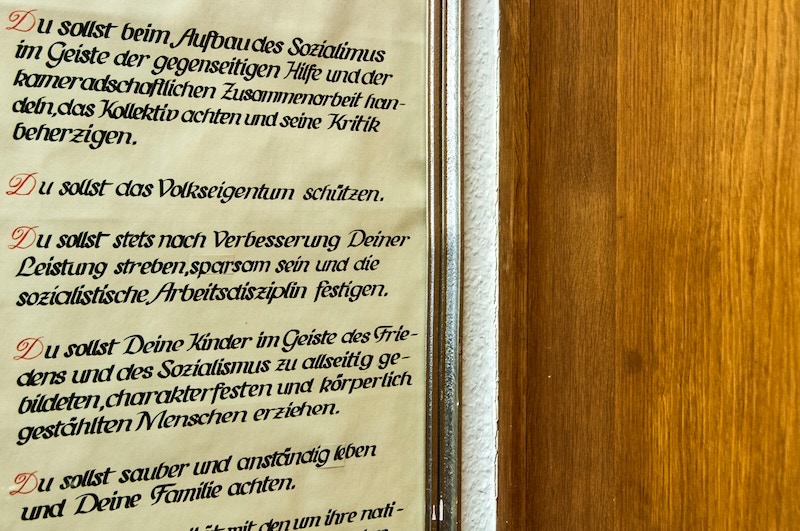 Du sollst beim Aufbau des Sozialimus
im Geiste der gegenseitigen Hilfe und der
kameradschaftlichen Zusammenarbeit han-
deln, das Kollektiv achten und seine Kritik
beherzigen.
Du sollst das Volkseigentum schützen.
Du sollst stets nach Verbesserung Deiner
Leistung streben, sparsam sein und die
sozialistische Arbeitsdisziplin festigen.
Du sollst Deine Kinder im Geiste des Frie-
dens und des Sozialismus zu allseitig ge-
bildeten, charakterfesten und körperlich
gestählten Menschen erziehen.
Du sollst sauber und anständig leben
und Deine Familie achten.
mit den um ihre nati-